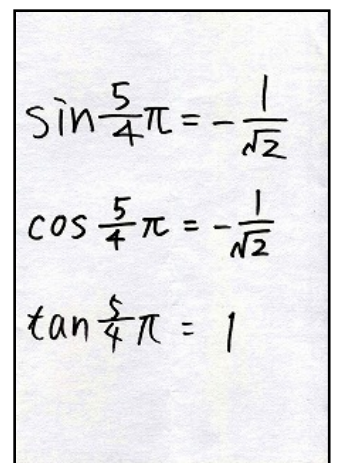 sin 5/4 π = - 1/√2
cos 5/4 π = - 1/√2
tan 5/4 π = 1